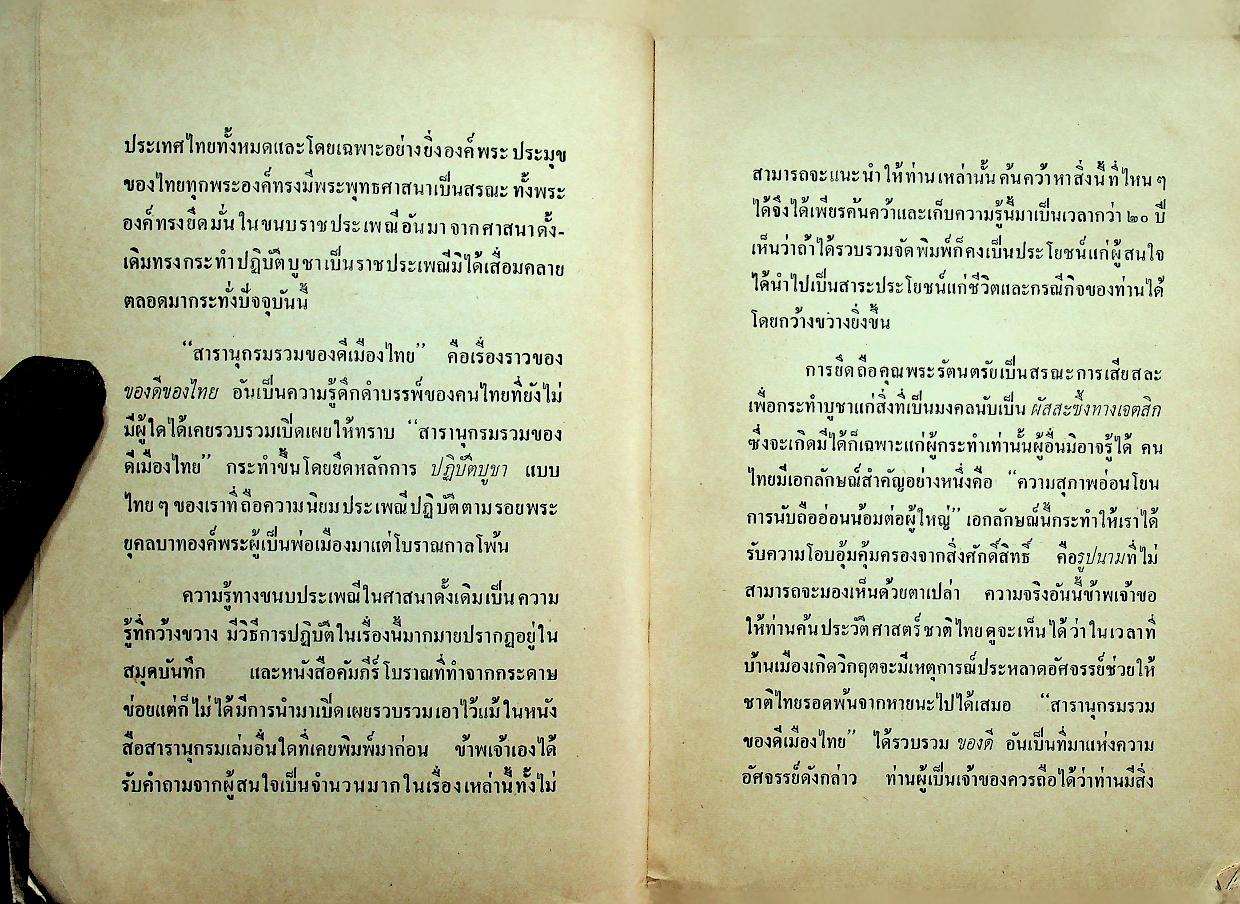 ประเทศไทยทั้งหมดและโดยเฉพาะอย่างยิ่งองค์พระ ประมุข
ของไทยทุกพระองค์ทรงมีพระพุทธศาสนาเป็นสรณะ ทั้งพระ
องค์ทรงยึดมั่น ในขนบราชประเพณีอันมาจากศาสนาดั้ง-
เดิมทรงกระทำปฏิบัติบูชาเป็นราชประเพณีมิได้เสื่อมคลาย
ตลอดมากระทั่งปัจจุบันนี้
“สารานุกรมรวมของดีเมืองไทย” คือเรื่องราวของ
ของดีของไทย อันเป็นความรู้ดึกดำบรรพ์ของคนไทยที่ยังไม่
มีผู้ใดได้เคยรวบรวมเปิดเผยให้ทราบ “สารานุกรมรวมของ
ดีเมืองไทย” กระทำขึ้นโดยยึดหลักการ ปฏิบัติบูชา แบบ
ไทย ๆ ของเราที่ถือความนิยมประเพณีปฏิบัติตามรอยพระ
ยุคลบาทองค์พระผู้เป็นพ่อเมืองมาแต่โบราณกาลโพ้น
ความรู้ทางขนบประเพณีในศาสนาดั้งเดิมเป็นความ
รู้ที่กว้างขวาง มีวิธีการปฏิบัติในเรื่องนี้มากมายปรากฏอยู่ใน
สมุดบันทึก และหนังสือคัมภีร์โบราณที่ทำจากกระดาษ
ข่อยแต่ก็ไม่ได้มีการนำมาเปิดเผยรวบรวมเอาไว้แม้ในหนัง
สือสารานุกรมเล่มอื่นใดที่เคยพิมพ์มาก่อน ข้าพเจ้าเองได้
รับคำถามจากผู้สนใจเป็นจำนวนมากในเรื่องเหล่านี้ทั้งไม่
สามารถจะแนะนำให้ท่านเหล่านั้นค้นคว้าหาสิ่งนี้ที่ไหน ๆ
ได้จึงได้เพียรค้นคว้าและเก็บความรู้นี้มาเป็นเวลากว่า ๒๐ ปี
เห็นว่าถ้าได้รวบรวมจัดพิมพ์ก็คงเป็นประโยชน์แก่ผู้สนใจ
ได้นำไปเป็นสาระประโยชน์แก่ชีวิตและกรณีกิจของท่านได้
โดยกว้างขวางยิ่งขึ้น
การยึดถือคุณพระรัตนตรัยเป็นสรณะการเสียสละ
เพื่อกระทำบูชาแก่สิ่งที่เป็นมงคลนับเป็น ผัสสะซึ้งทางเจตสิก
ซึ่งจะเกิดมีได้ก็เฉพาะแก่ผู้กระทำเท่านั้นผู้อื่นมิอาจรู้ได้ คน
ไทยมีเอกลักษณ์สำคัญอย่างหนึ่งคือ “ความสุภาพอ่อนโยน
การนับถืออ่อนน้อมต่อผู้ใหญ่” เอกลักษณ์นี้กระทำให้เราได้
รับความโอบอุ้มคุ้มครองจากสิ่งศักดิ์สิทธิ์ คือรูปนามที่ไม่
สามารถจะมองเห็นด้วยตาเปล่า ความจริงอันนี้ข้าพเจ้าขอ
ให้ท่านค้นประวัติศาสตร์ชาติไทยดูจะเห็นได้ว่าในเวลาที่
บ้านเมืองเกิดวิกฤตจะมีเหตุการณ์ประหลาดอัศจรรย์ช่วยให้
ชาติไทยรอดพ้นจากหายนะไปได้เสมอ “สารานุกรมรวม
ของดีเมืองไทย” ได้รวบรวม ของดี อันเป็นที่มาแห่งความ
อัศจรรย์ดังกล่าว ท่านผู้เป็นเจ้าของควรถือได้ว่าท่านมีสิ่ง